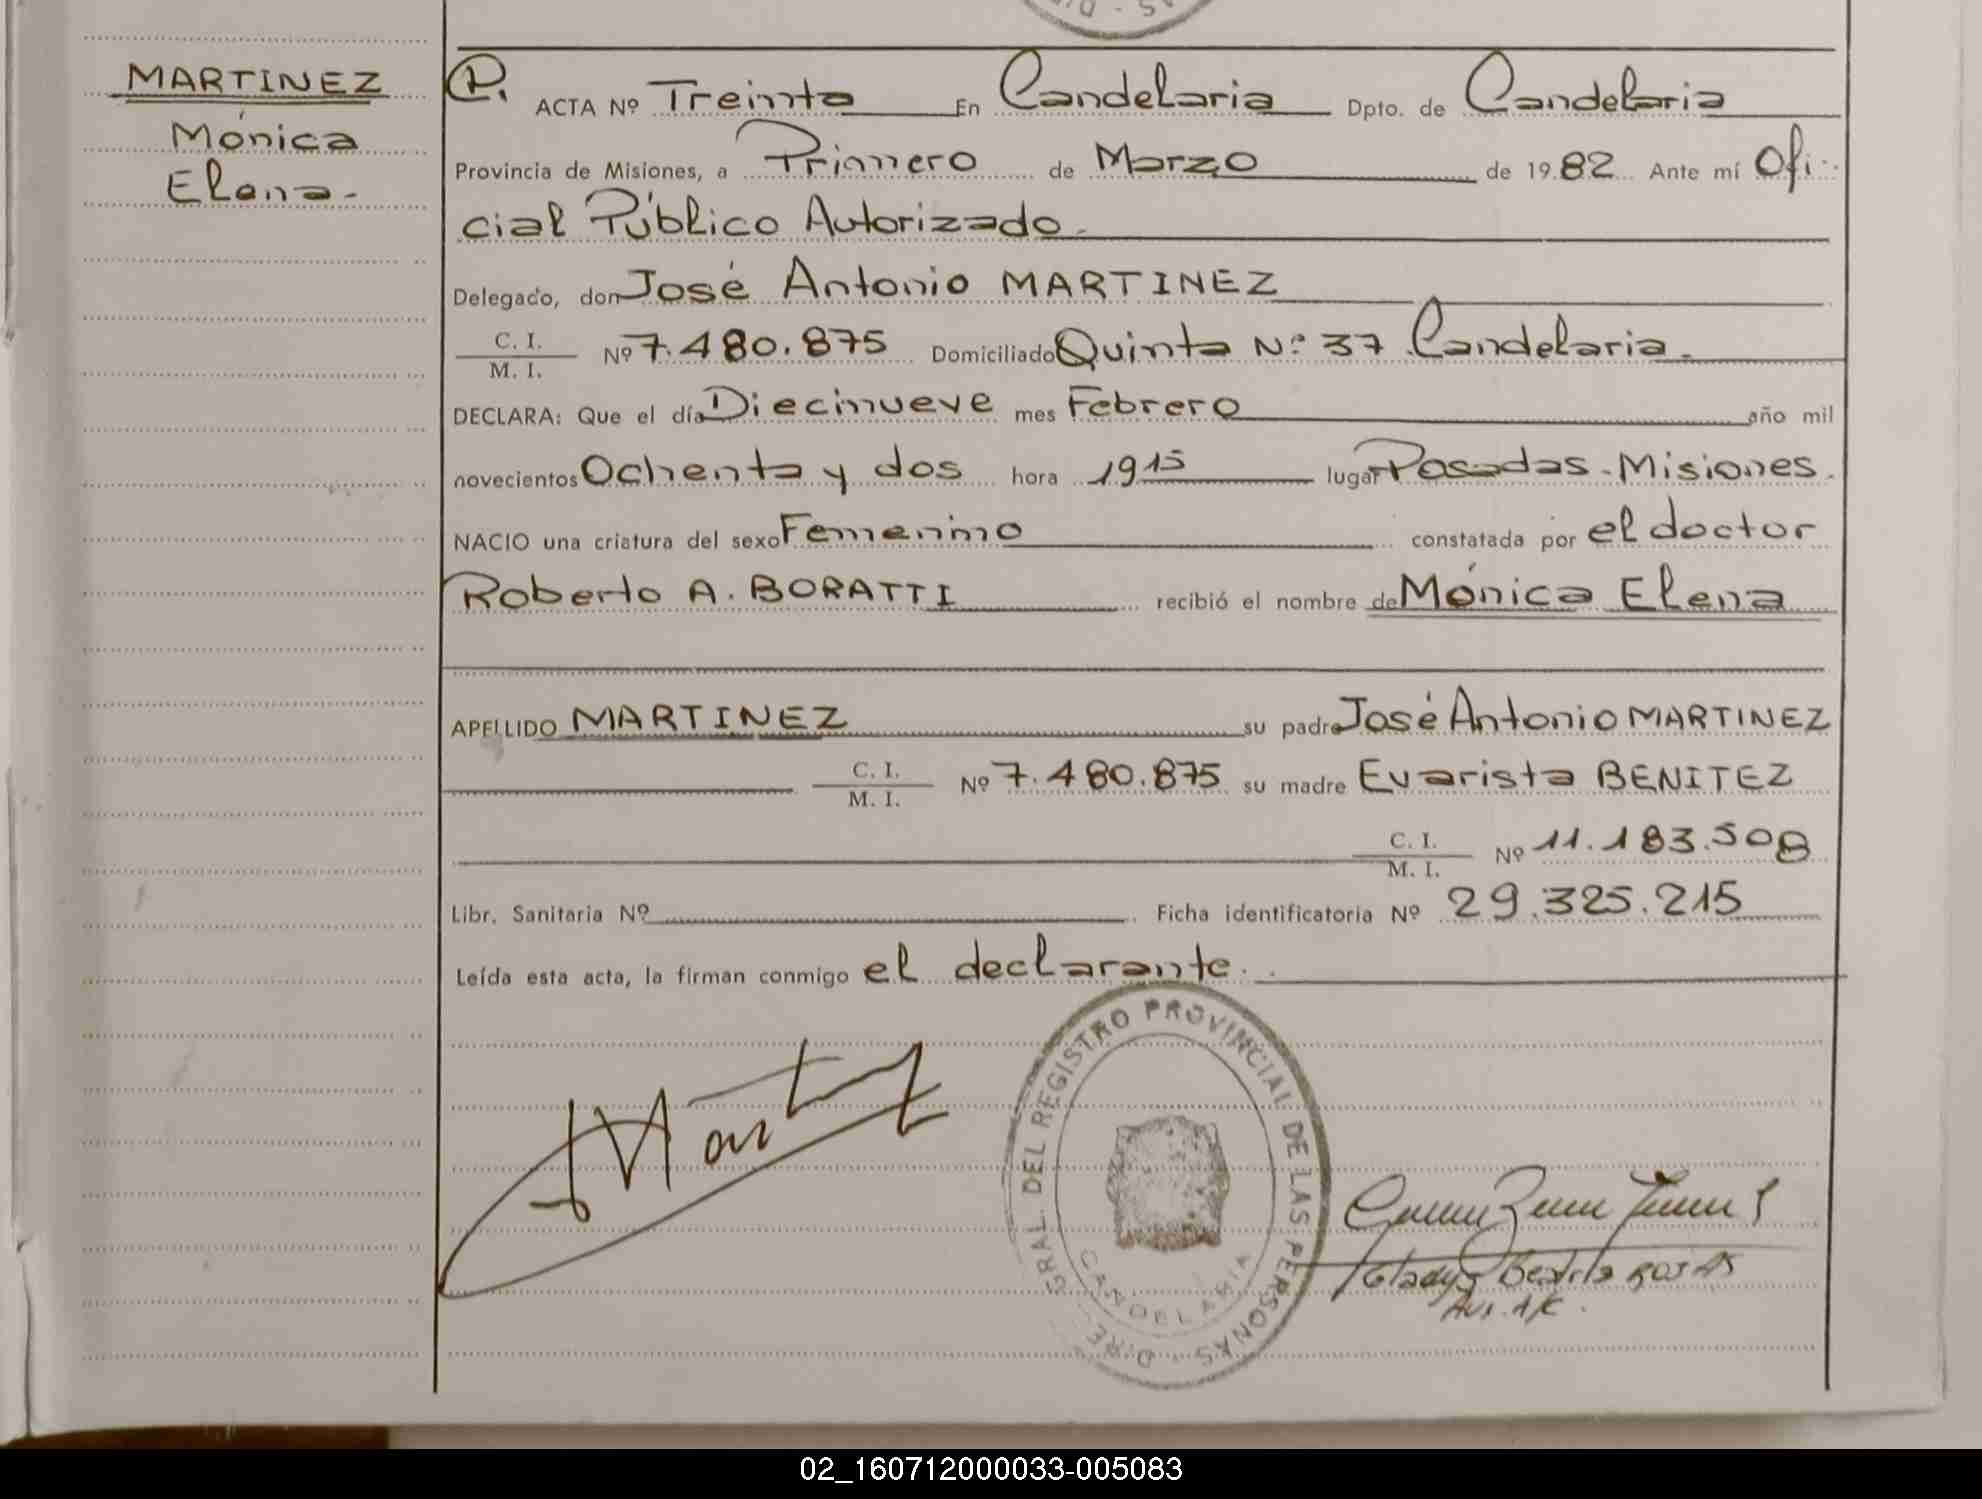 AS - DI
MARTINEZ
Mónica
Elena-
P. ACTA Nº Treinta En Candelaria Dpto. de Candelaria
Provincia de Misiones, a Primero de Marzo de 1982 Ante mí Ofi-
cial Público Autorizado.
Delegado, don José Antonio MARTINEZ
C. I.
M. I. Nº 7.480.875 Domiciliado Quinta Nº 37 Candelaria.
DECLARA: Que el día Diecinueve mes Febrero año mil
novecientos Ochenta y dos hora 1915 lugar Posadas - Misiones.
NACIO una criatura del sexo Femenino constatada por el doctor
Roberto A. BORATTI recibió el nombre de Mónica Elena
APELLIDO MARTINEZ su padre José Antonio MARTINEZ
C. I.
M. I. Nº 7.480.875 su madre Evarista BENITEZ
C. I.
M. I. Nº 11.183.508
Libr. Sanitaria Nº Ficha identificatoria Nº 29.325.215
Leída esta acta, la firman conmigo el declarante.
DIRE. GRAL. DEL REGISTRO PROVINCIAL DE LAS PERSONAS -
CANDELARIA
Gladys Beatriz
02_160712000033-005083